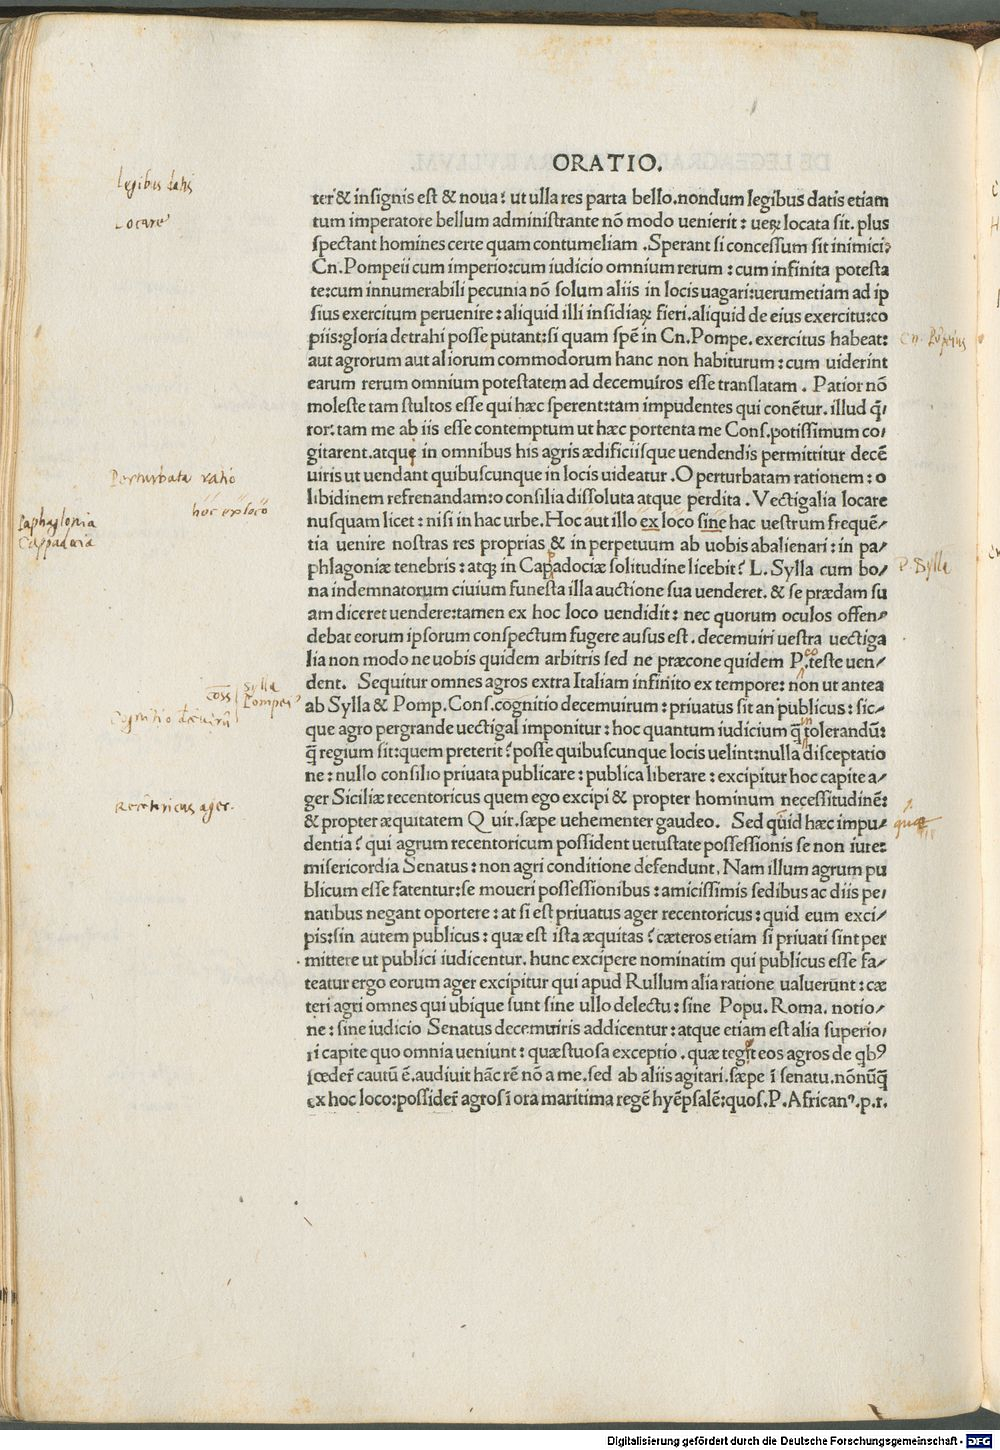 ORATIO.
legibus datis
Locare
ter & insignis est & noua? ut ulla res parta bello.nondum legibus datis etiam
tum imperatore bellum administrante nō modo uenierit: ueꝝ locata sit. plus
spectant homines certe quam contumeliam .Sperant si concessum sit inimici?
Cn.Pompeii cum imperio:cum iudicio omnium rerum : cum infinita potesta
te:cum innumerabili pecunia nō solum aliis in locis uagari:uerumetiam ad ip
sius exercitum peruenire: aliquid illi insidiaꝝ fieri.aliquid de eius exercitu:co
piis:gloria detrahi posse putant:si quam spē in Cn.Pompe.exercitus habeat:
Cn. Pōpeius
aut agrorum aut aliorum commodorum hanc non habiturum: cum uiderint
earum rerum omnium potestatem ad decemuiros esse translatam . Patior nō
moleste tam stultos esse qui hæc sperent:tam impudentes qui conētur. illud q̄/
ror: tam me ab iis esse contemptum ut hæc portenta me Cons.potissimum co/
gitarent.atque in omnibus his agris ædificiisque uendendis permittitur decē
uiris ut uendant quibuscunque in locis uideatur .O perturbatam rationem: o
Perturbata ratio
libidinem refrenandam:o consilia dissoluta atque perdita . Vectigalia locare
hoc ex loco
nusquam licet: nisi in hac urbe. Hoc aut illo ex loco sine hac uestrum frequē/
Paphaglonia
tia uenire nostras res proprias & in perpetuum ab uobis abalienari: in pa/
Cappadocia
phlagoniæ tenebris: atqꝫ in Capadociæ solitudine licebit? L. Sylla cum bo/
P. Sylla
na indemnatorum ciuium funesta illa auctione sua uenderet. & se prædam su
am diceret uendere:tamen ex hoc loco uendidit: nec quorum oculos offen/
debat eorum ipsorum conspectum fugere ausus est. decemuiri uestra uectiga
lia non modo ne uobis quidem arbitris sed ne præcone quidem P.teste uen/
dent. Sequitur omnes agros extra Italiam infiniito ex tempore: non ut antea
coss Sylla
Pompei
ab Sylla & Pomp.Cons.cognitio decemuirum: priuatus sit an publicus: sic/
Cognitio decēuirū
que agro pergrande uectigal imponitur: hoc quantum iudicium q̄ tolerandū:
q̄ regium sit:quem preterit? posse quibuscunque locis uelint:nulla disceptatio
ne: nullo consilio priuata publicare: publica liberare: excipitur hoc capite a/
ger Siciliæ recentoricus quem ego excipi & propter hominum necessitudinē:
Recentoricus ager.
& propter æquitatem Q uir.sæpe uehementer gaudeo. Sed quid hæc impu/
dentia? qui agrum recentoricum possident uetustate possessionis se non iure:
misericordia Senatus: non agri conditione defendunt. Nam illum agrum pu
blicum esse fatentur:se moueri possessionibus: amicissimis sedibus ac diis pe/
natibus negant oportere: at si est priuatus ager recentoricus: quid eum exci/
pis:sin autem publicus: quæ est ista æquitas? cæteros etiam si priuati sint per
mittere ut publici iudicentur. hunc excipere nominatim qui publicus esse fa/
teatur ergo eorum ager excipitur qui apud Rullum alia ratione ualuerūnt: cæ
teri agri omnes qui ubique sunt sine ullo delectu: sine Popu. Roma. notio/
ne: sine iudicio Senatus decemuiris addicentur: atque etiam est alia superio/
ri capite quo omnia ueniunt: quæstuosa exceptio . quæ tegit eos agros de qbꝰ
fœder̄ cautū ē.audiuit hāc rē nō a me.sed ab aliis agitari.sæpe ī senatu.nōnūq̄
ex hoc loco:possider̄ agros ī ora maritima regē hyēpsalē:quos.P.Africanꝰ.p.r.
Digitalisierung gefördert durch die Deutsche Forschungsgemeinschaft - DFG